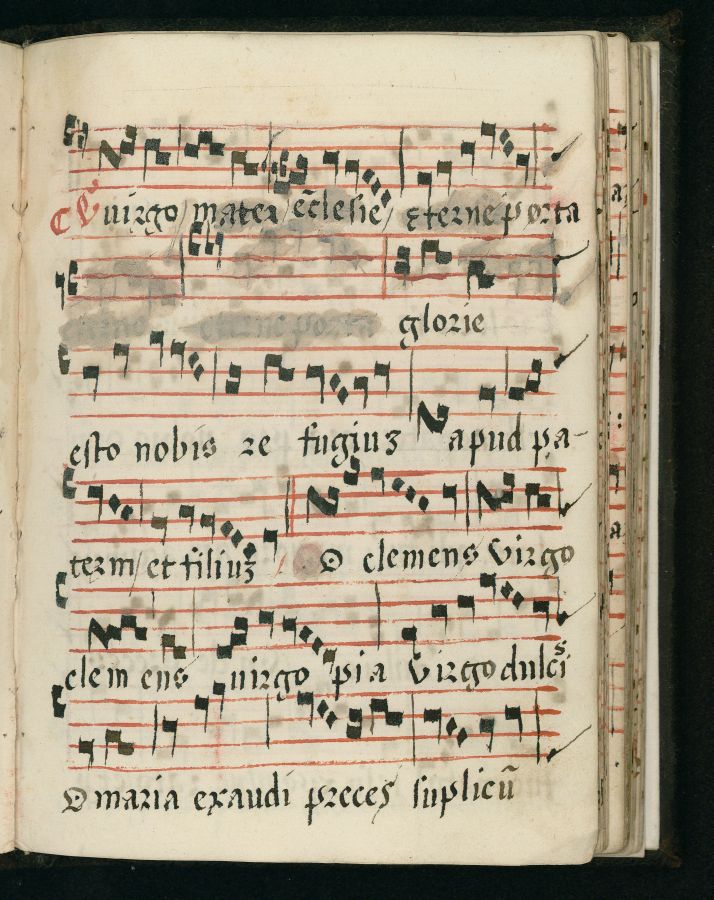 ℣ virgo mater ec̄lesie eterne porta
eterne porta glorie
esto nobis re fugiuȝ apud pa-
trem et filiuȝ O clemens Virgo
clemens virgo pia Virgo dulcis
O maria exaudi preces suplicū